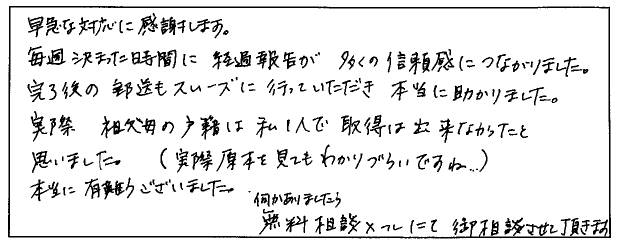 早急な対応に感謝します。
毎週決まった日時間に経過報告が多くの信頼感につながりました。
完了後の郵送もスムーズに行っていただき本当に助かりました。
実際 祖父母の戸籍は私1人で取得は出来なかったと
思いました。(実際原本を見てもわかりづらいですね…)
本当に有難うございました。
何かありましたら
無料相談メールにて御相談させて頂きます